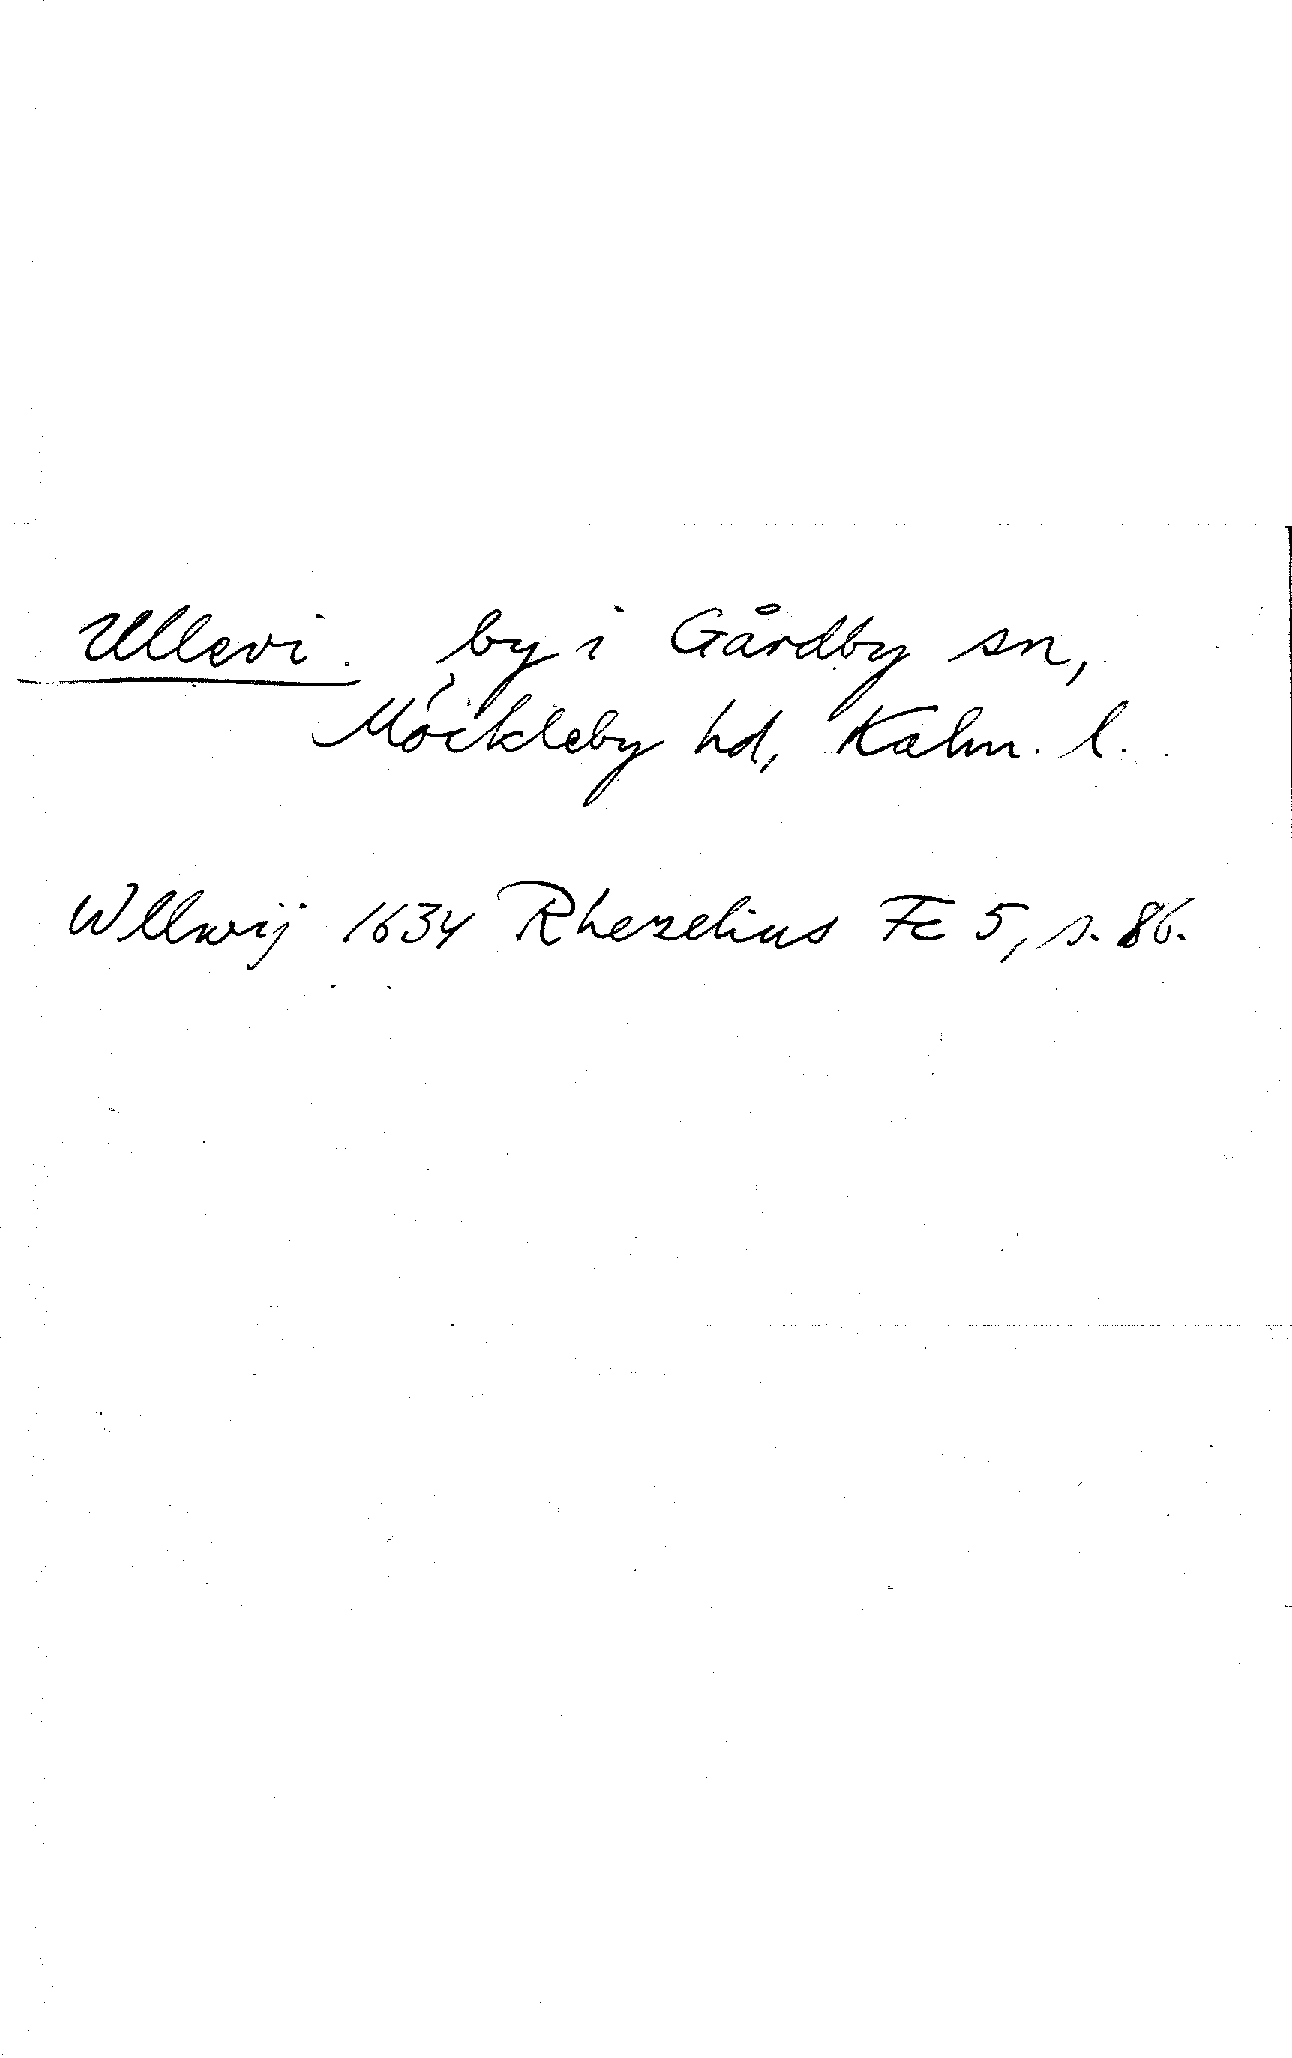 Ullevi. by i Gårdby sn,
Möckleby hd, Kalm. l.
Wllwij 1634 Rhezelius Fc 5, s. 86.